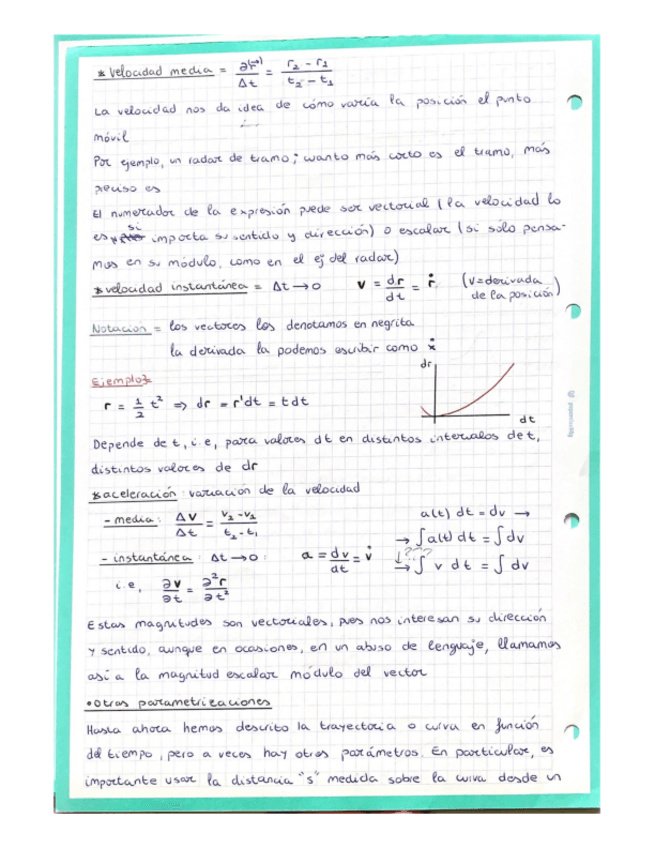 * Velocidad media = ∂(r) / Δt = r₂ - r₁ / t₂ - t₁
La velocidad nos da idea de cómo varía la posición el punto
móvil
Por ejemplo, un radar de tramo; cuanto más corto es el tramo, más
preciso es
El numerador de la expresión puede ser vectorial (la velocidad lo
es, si importa su sentido y dirección) o escalar (si sólo pensa-
mos en su módulo, como en el ej del radar)
* velocidad instantánea = Δt → 0   v = dr/dt = ṙ   (v = derivada
de la posición)
Notación = los vectores los denotamos en negrita
la derivada la podemos escribir como ẋ
Ejemplo:
dr
r = 1/2 t² ⇒ dr = r'dt = t dt
dt
Depende de t, i.e, para valores dt en distintos intervalos de t,
distintos valores de dr
* aceleración: variación de la velocidad
- media: Δv/Δt = v₂ - v₁ / t₂ - t₁
a(t) dt = dv →
→ ∫a(t) dt = ∫dv
- instantánea: Δt → 0: a = dv/dt = v̇
↓???
→ ∫ v dt = ∫ dv
i.e, ∂v/∂t = ∂²r/∂t²
Estas magnitudes son vectoriales, pues nos interesan su dirección
y sentido, aunque en ocasiones, en un abuso de lenguaje, llamamos
así a la magnitud escalar módulo del vector
• otras parametrizaciones
Hasta ahora hemos descrito la trayectoria o curva en función
del tiempo, pero a veces hay otros parámetros. En particular, es
importante usar la distancia "s" medida sobre la curva desde un